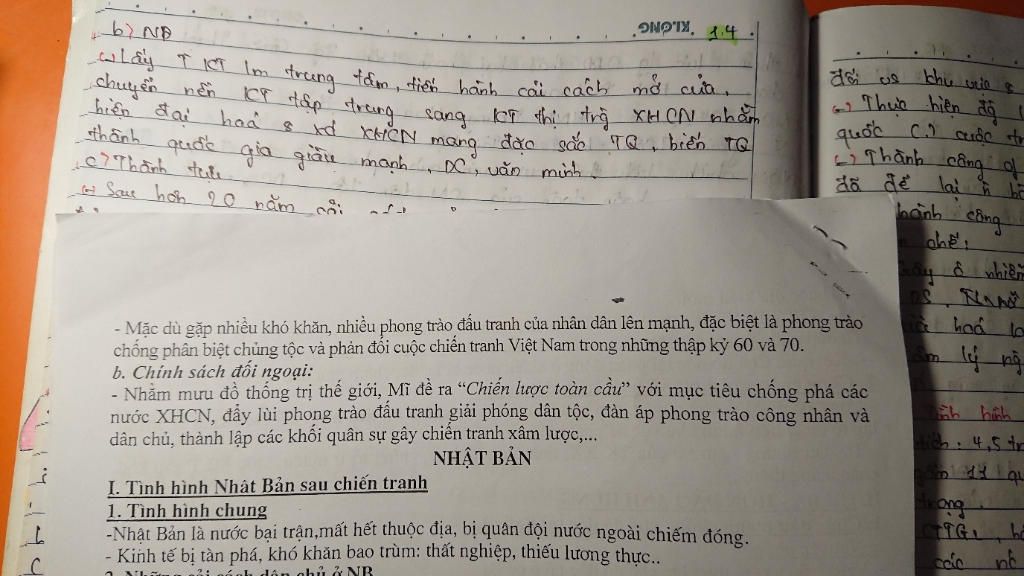 KLONG 1.4
b) NĐ
(-) Lấy PT KT lm trung tâm, tiến hành cải cách mở cửa,
chuyển nền KT tập trung sang KT thị trg XHCN nhằm
hiện đại hoá & xd XHCN mang đặc sắc TQ, biến TQ
thành quốc gia giàu mạnh, DC, văn minh.
c) Thành tựu
(-) Sau hơn 20 năm
- Mặc dù gặp nhiều khó khăn, nhiều phong trào đấu tranh của nhân dân lên mạnh, đặc biệt là phong trào
chống phân biệt chủng tộc và phản đối cuộc chiến tranh Việt Nam trong những thập kỷ 60 và 70.
b. Chính sách đối ngoại:
- Nhằm mưu đồ thống trị thế giới, Mĩ đề ra “Chiến lược toàn cầu” với mục tiêu chống phá các
nước XHCN, đẩy lùi phong trào đấu tranh giải phóng dân tộc, đàn áp phong trào công nhân và
dân chủ, thành lập các khối quân sự gây chiến tranh xâm lược,...
NHẬT BẢN
I. Tình hình Nhât Bản sau chiến tranh
1. Tình hình chung
-Nhật Bản là nước bại trận,mất hết thuộc địa, bị quân đội nước ngoài chiếm đóng.
- Kinh tế bị tàn phá, khó khăn bao trùm: thất nghiệp, thiếu lương thực..
2. Những cải cách dân chủ ở NB
đối vs khu vực &
(-) Thực hiện độ
quốc (.) cuộc
(-) Thành công
đã để lại
thành công
chế:
ô nhiễm
hoá
lý
Tình hình
4,5
11
trọng.
CTTG1,
các